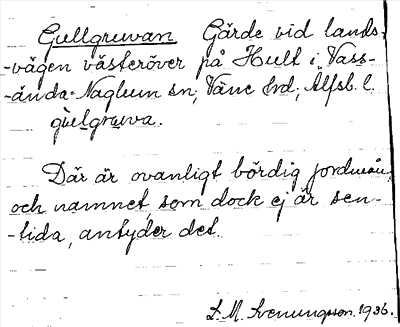 Gullgruvan Gärde vid lands-
-vägen västeröver på Hult i Vass-
-ända-Naglum sn, Väne hd, Älfsb. l.
gúlgruva.
Där är ovanligt bördig jordmån
och namnet, som dock ej är sen-
-tida, antyder det.
L. M. Svenungsson. 1936.